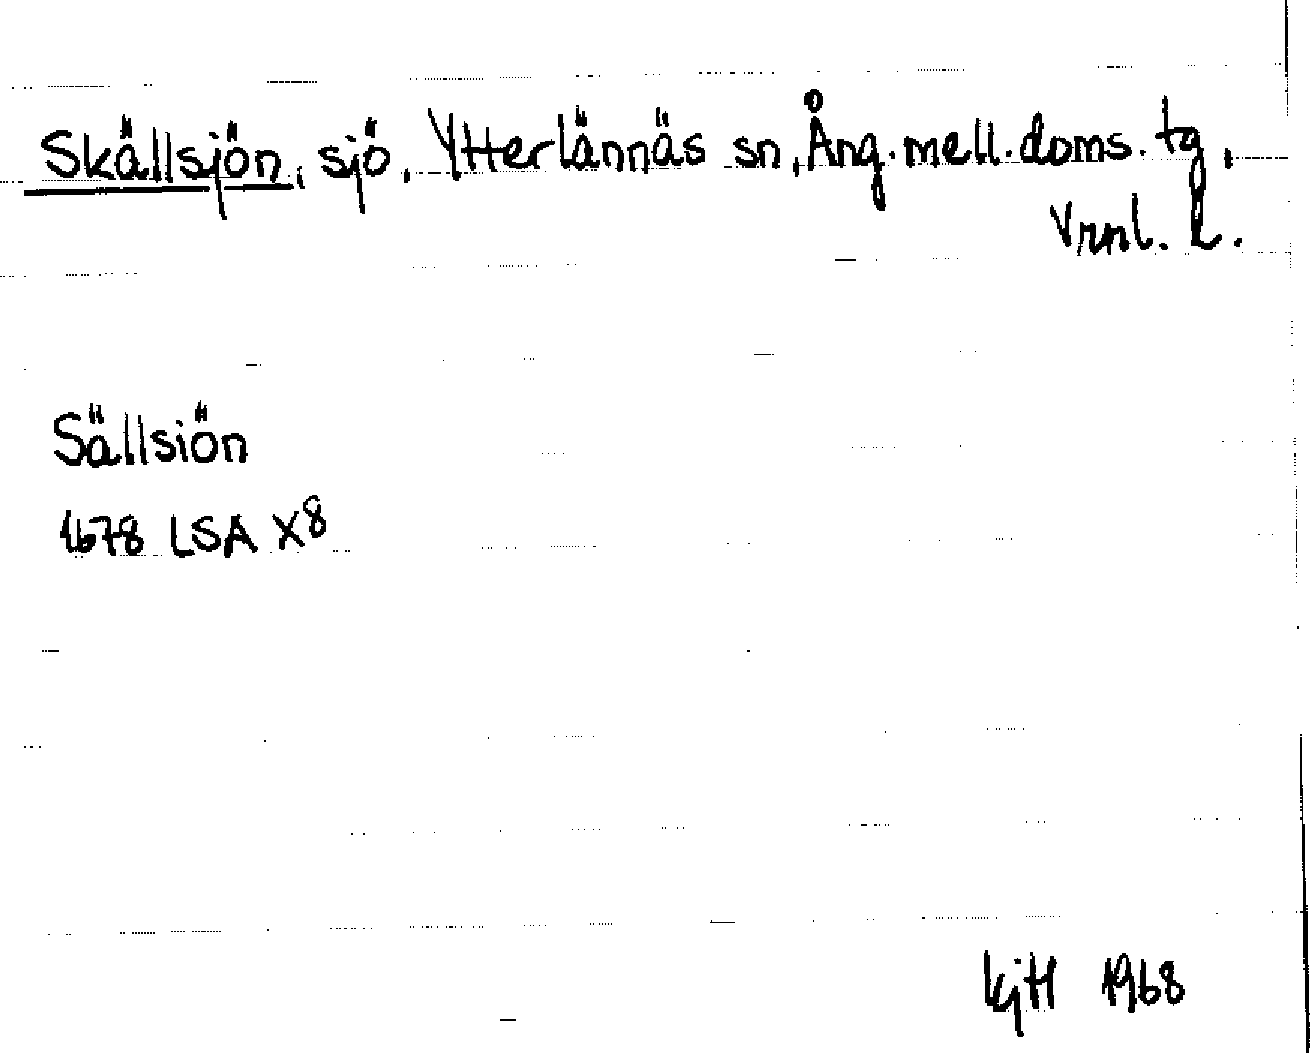 Skällsjön, sjö, Ytterlännäs sn, Ång. mell. doms. tg,
Vrnl. l.
Sällsiön
1678 LSA X8
KjH 1968